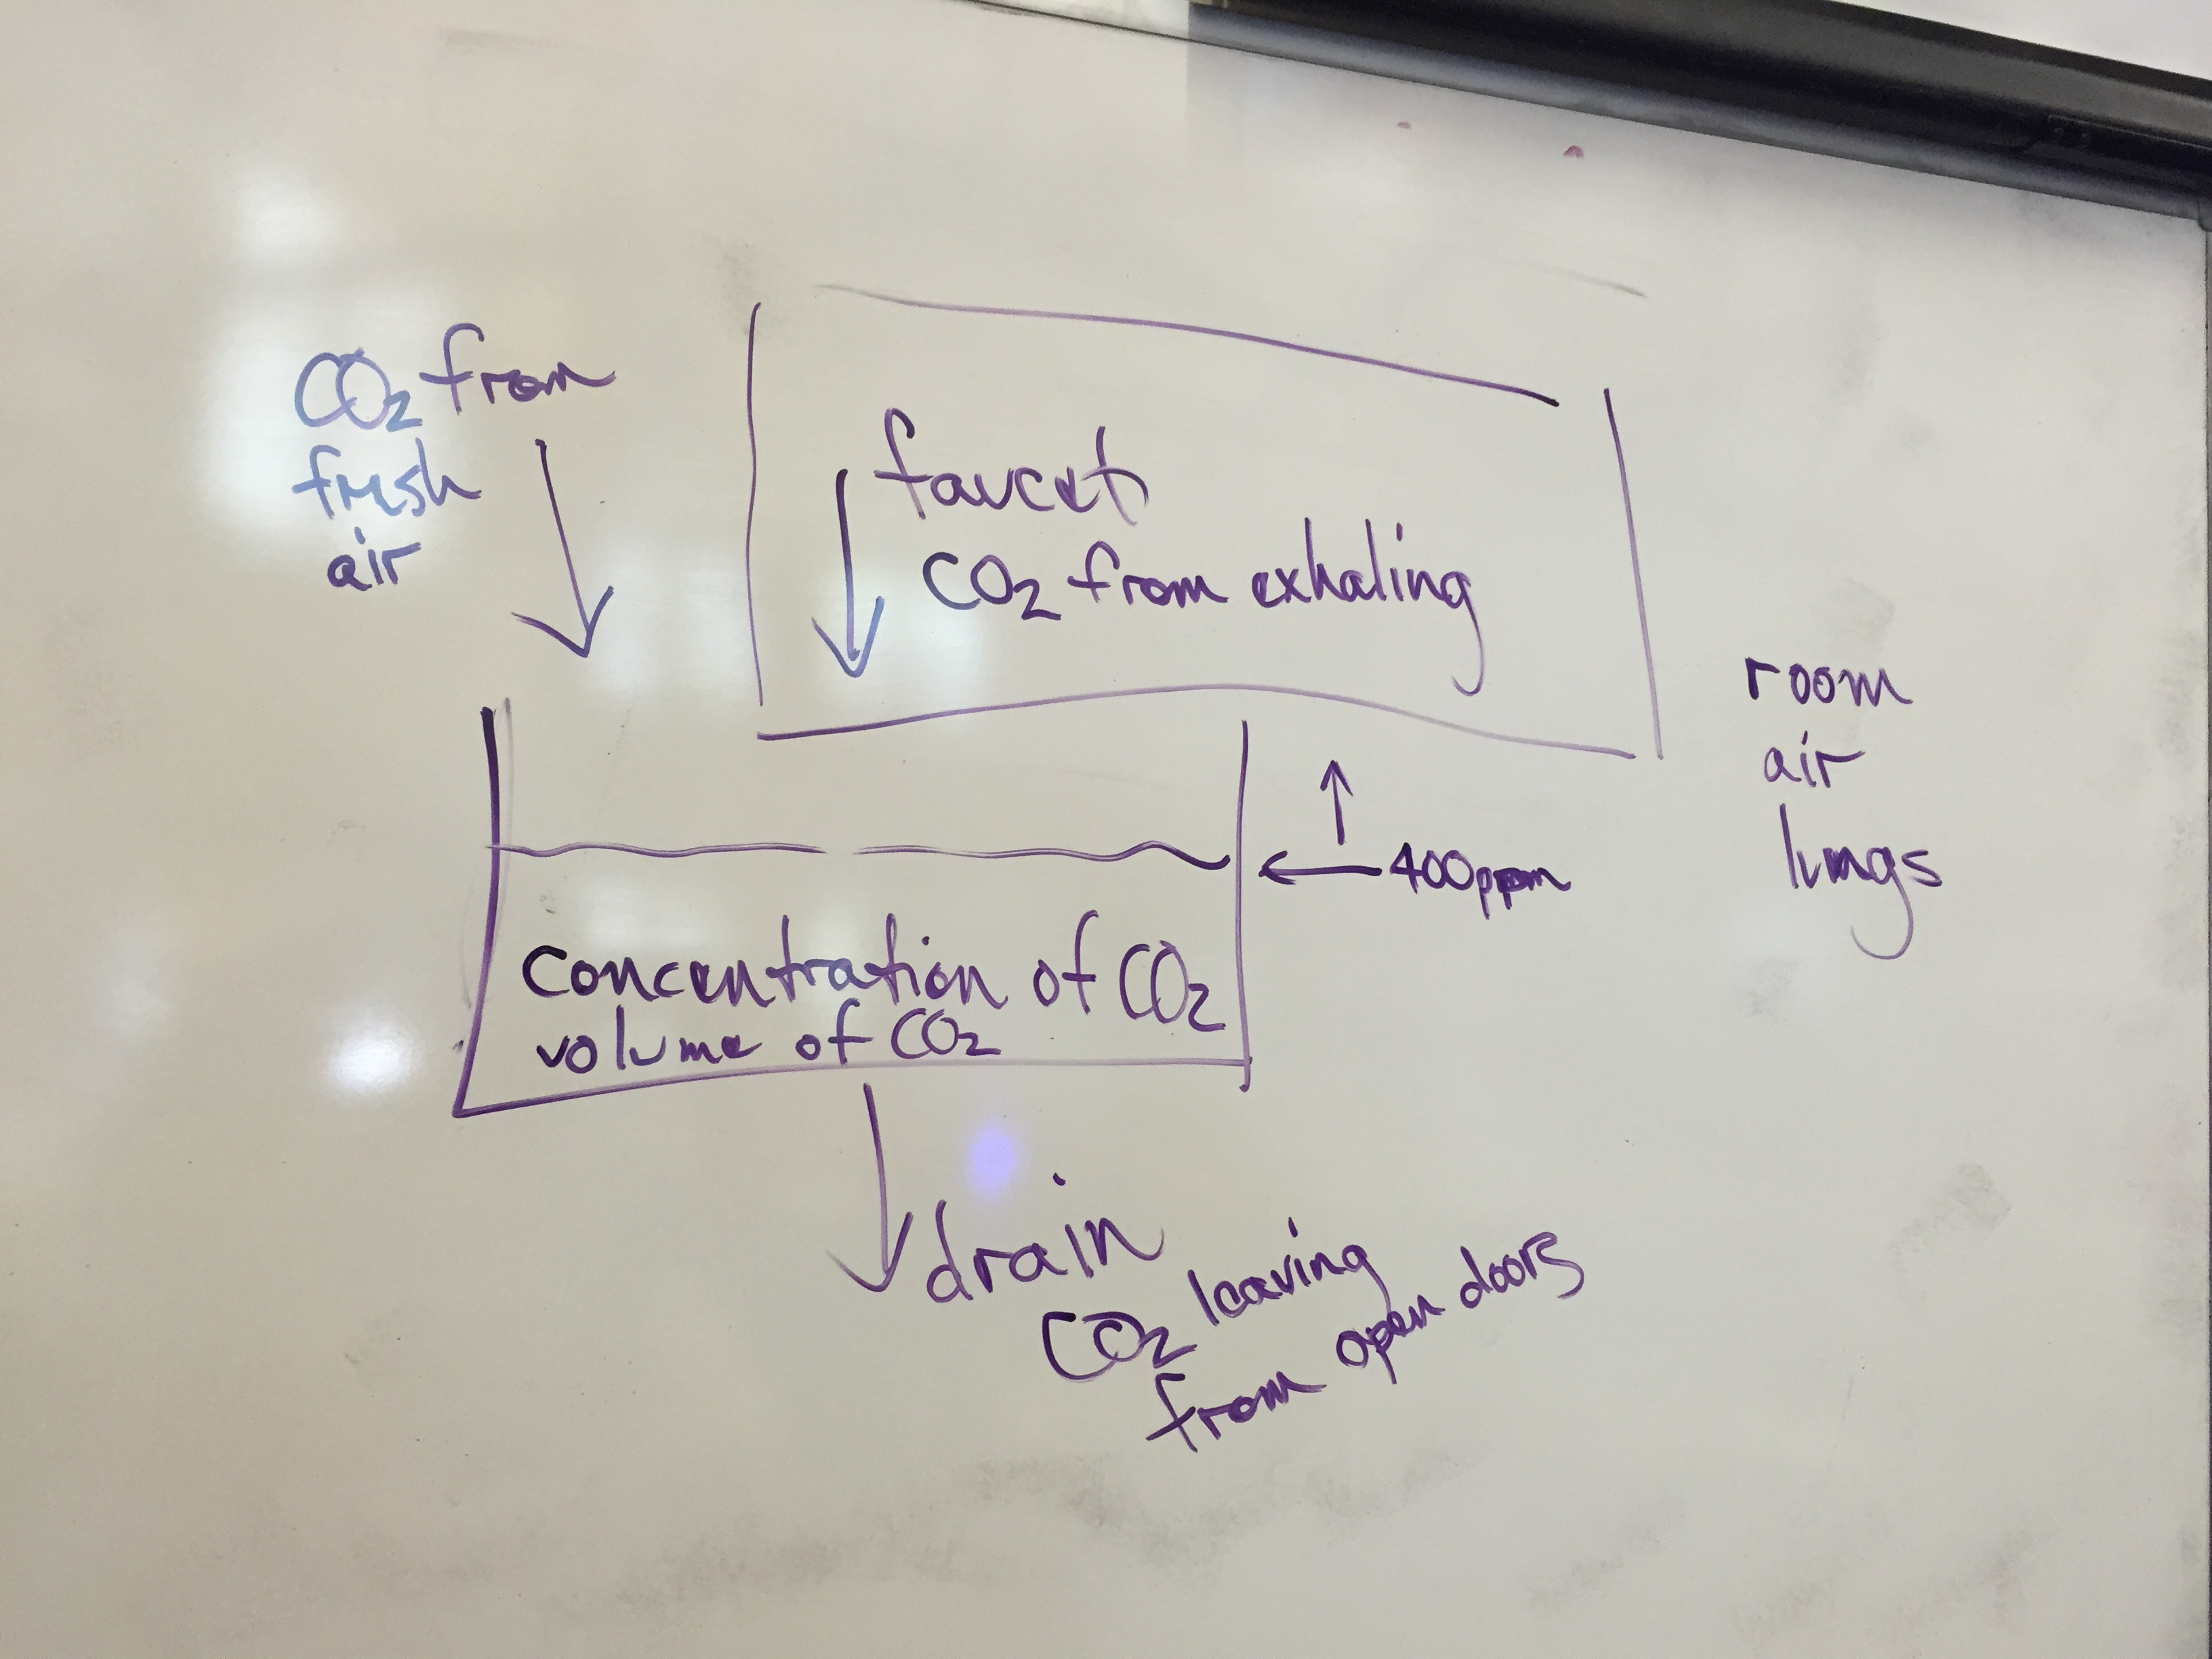 CO2 from
fresh
air
faucet
CO2 from exhaling
room
air
lungs
400ppm
concentration of CO2
volume of CO2
drain
CO2 leaving
from open doors